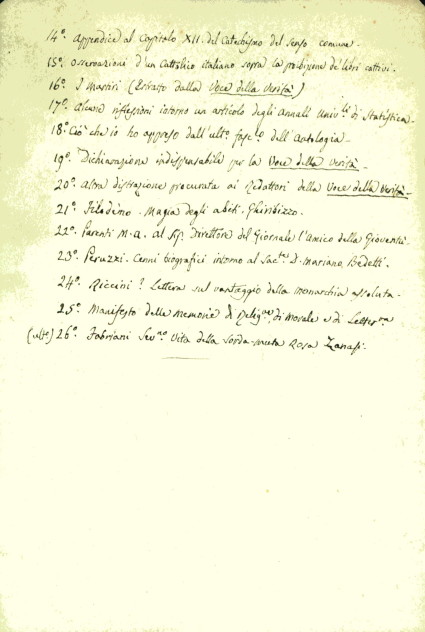 14º. Appendice al Capitolo XII. del Catechismo del senso comune.
15º. Osservazioni d'un Cattolico italiano sopra la proibizione de' libri cattivi.
16º. I Mostri (Estratto dalla Voce della Verità.)
17º. Alcune riflessioni intorno un articolo degli Annali Univ.li di Statistica.
18º. Ciò che io ho appreso dall'ult.º fasc.º dell'Antologia.
19º. Dichiarazione indispensabile per la Voce della Verità.
20º. Altra distrazione procurata ai Redattori della Voce della Verità.
21º. Filodemo. Magia degli abiti. Ghiribizzo.
22º. Parenti M. A. al Sig. Direttore del Giornale l'Amico della Gioventù.
23º. Peruzzi. Cenni biografici intorno al Sac.te D. Mariano Bedetti.
24º. Riccini? Lettera sul vantaggio della monarchia assoluta.
25º. Manifesto delle Memorie di Relig.ne di Morale e di Letter.ra
(ult.º) 26º. Fabriani Sev.no Vita della sorda-muta Rosa Zanasi.